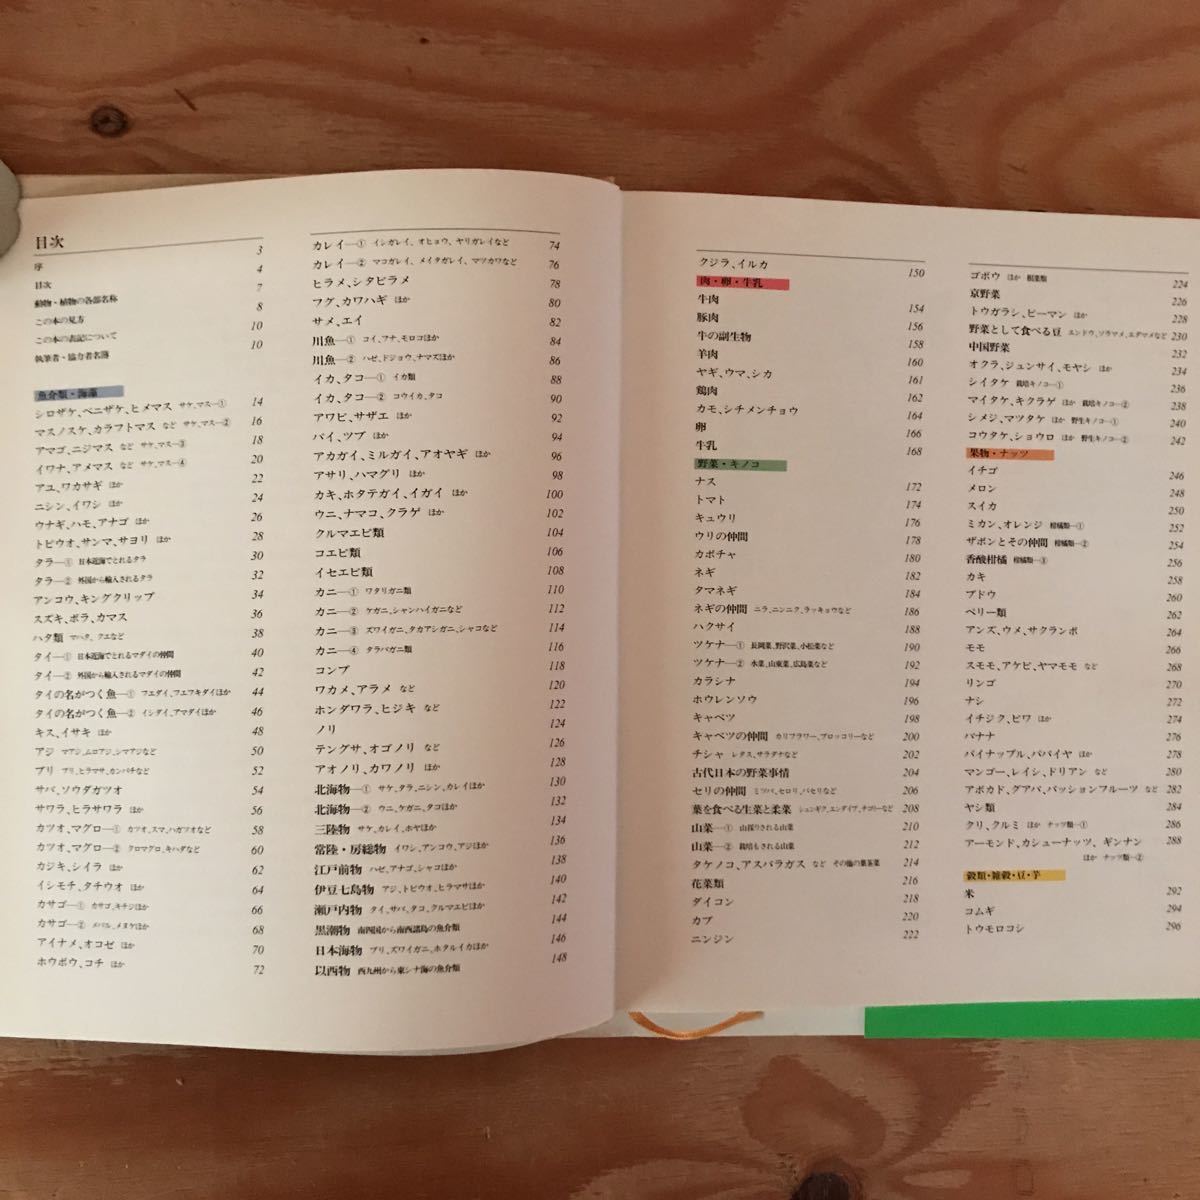 目次
序 3
目次 4
動物・植物の各部名称 7
この本の見方 8
この本の表記について 10
執筆者・協力者名簿 10
魚介類・海藻
シロザケ、ベニザケ、ヒメマス サケ、マス—① 14
マスノスケ、カラフトマス など サケ、マス—② 16
アマゴ、ニジマス など サケ、マス—③ 18
イワナ、アメマス など サケ、マス—④ 20
アユ、ワカサギ ほか 22
ニシン、イワシ ほか 24
ウナギ、ハモ、アナゴ ほか 26
トビウオ、サンマ、サヨリ ほか 28
タラ—① 日本近海でとれるタラ 30
タラ—② 外国から輸入されるタラ 32
アンコウ、キングクリップ 34
スズキ、ボラ、カマス 36
ハタ類 マハタ、クエなど 38
タイ—① 日本近海でとれるマダイの仲間 40
タイ—② 外国から輸入されるマダイの仲間 42
タイの名がつく魚—① フエダイ、フエフキダイほか 44
タイの名がつく魚—② イシダイ、アマダイほか 46
キス、イサキ ほか 48
アジ マアジ、ムロアジ、シマアジなど 50
ブリ ブリ、ヒラマサ、カンパチなど 52
サバ、ソウダガツオ 54
サワラ、ヒラサワラ ほか 56
カツオ、マグロ—① カツオ、スマ、ハガツオなど 58
カツオ、マグロ—② クロマグロ、キハダなど 60
カジキ、シイラ ほか 62
イシモチ、タチウオ ほか 64
カサゴ—① カサゴ、キチジほか 66
カサゴ—② メバル、メヌケほか 68
アイナメ、オコゼ ほか 70
ホウボウ、コチ ほか 72
カレイ—① イシガレイ、オヒョウ、ヤリガレイなど 74
カレイ—② マコガレイ、メイタガレイ、マツカワなど 76
ヒラメ、シタビラメ 78
フグ、カワハギ ほか 80
サメ、エイ 82
川魚—① コイ、フナ、モロコほか 84
川魚—② ハゼ、ドジョウ、ナマズほか 86
イカ、タコ—① イカ類 88
イカ、タコ—② コウイカ、タコ 90
アワビ、サザエ ほか 92
バイ、ツブ ほか 94
アカガイ、ミルガイ、アオヤギ ほか 96
アサリ、ハマグリ ほか 98
カキ、ホタテガイ、イガイ ほか 100
ウニ、ナマコ、クラゲ ほか 102
クルマエビ類 104
コエビ類 106
イセエビ類 108
カニ—① ワタリガニ類 110
カニ—② ケガニ、シャンハイガニなど 112
カニ—③ ズワイガニ、タカアシガニ、シャコなど 114
カニ—④ タラバガニ類 116
コンブ 118
ワカメ、アラメ など 120
ホンダワラ、ヒジキ など 122
ノリ 124
テングサ、オゴノリ など 126
アオノリ、カワノリ ほか 128
北海物—① サケ、タラ、ニシン、カレイほか 130
北海物—② ウニ、ケガニ、タコほか 132
三陸物 サケ、カレイ、ホヤほか 134
常陸・房総物 イワシ、アンコウ、アジほか 136
江戸前物 ハゼ、アナゴ、シャコほか 138
伊豆七島物 アジ、トビウオ、ヒラマサほか 140
瀬戸内物 タイ、サバ、タコ、クルマエビほか 142
黒潮物 南四国から南西諸島の魚介類 144
日本海物 ブリ、ズワイガニ、ホタルイカほか 146
以西物 西九州から東シナ海の魚介類 148
クジラ、イルカ 150
肉・卵・牛乳
牛肉 154
豚肉 156
牛の副生物 158
羊肉 160
ヤギ、ウマ、シカ 161
鶏肉 162
カモ、シチメンチョウ 164
卵 166
牛乳 168
野菜・キノコ
ナス 172
トマト 174
キュウリ 176
ウリの仲間 178
カボチャ 180
ネギ 182
タマネギ 184
ネギの仲間 ニラ、ニンニク、ラッキョウなど 186
ハクサイ 188
ツケナ—① 長岡菜、野沢菜、小松菜など 190
ツケナ—② 水菜、山東菜、広島菜など 192
カラシナ 194
ホウレンソウ 196
キャベツ 198
キャベツの仲間 カリフラワー、ブロッコリーなど 200
チシャ レタス、サラダナなど 202
古代日本の野菜事情 204
セリの仲間 ミツバ、セロリ、パセリなど 206
葉を食べる生菜と柔菜 シュンギク、エンダイブ、チコリーなど 208
山菜—① 山採りされる山菜 210
山菜—② 栽培もされる山菜 212
タケノコ、アスパラガス など その他の葉茎菜 214
花菜類 216
ダイコン 218
カブ 220
ニンジン 222
ゴボウ ほか 根菜類 224
京野菜 226
トウガラシ、ピーマン ほか 228
野菜として食べる豆 エンドウ、ソラマメ、エダマメなど 230
中国野菜 232
オクラ、ジュンサイ、モヤシ ほか 234
シイタケ 栽培キノコ—① 236
マイタケ、キクラゲ ほか 栽培キノコ—② 238
シメジ、マツタケ ほか 野生キノコ—① 240
コウタケ、ショウロ ほか 野生キノコ—② 242
果物・ナッツ
イチゴ 246
メロン 248
スイカ 250
ミカン、オレンジ 柑橘類—① 252
ザボンとその仲間 柑橘類—② 254
香酸柑橘 柑橘類—③ 256
カキ 258
ブドウ 260
ベリー類 262
アンズ、ウメ、サクランボ 264
モモ 266
スモモ、アケビ、ヤマモモ など 268
リンゴ 270
ナシ 272
イチジク、ビワ ほか 274
バナナ 276
パイナップル、パパイヤ ほか 278
マンゴー、レイシ、ドリアン など 280
アボカド、グアバ、パッションフルーツ など 282
ヤシ類 284
クリ、クルミ ほか ナッツ類—① 286
アーモンド、カシューナッツ、ギンナン 288
ほか ナッツ類—②
穀類・雑穀・豆・芋
米 292
コムギ 294
トウモロコシ 296